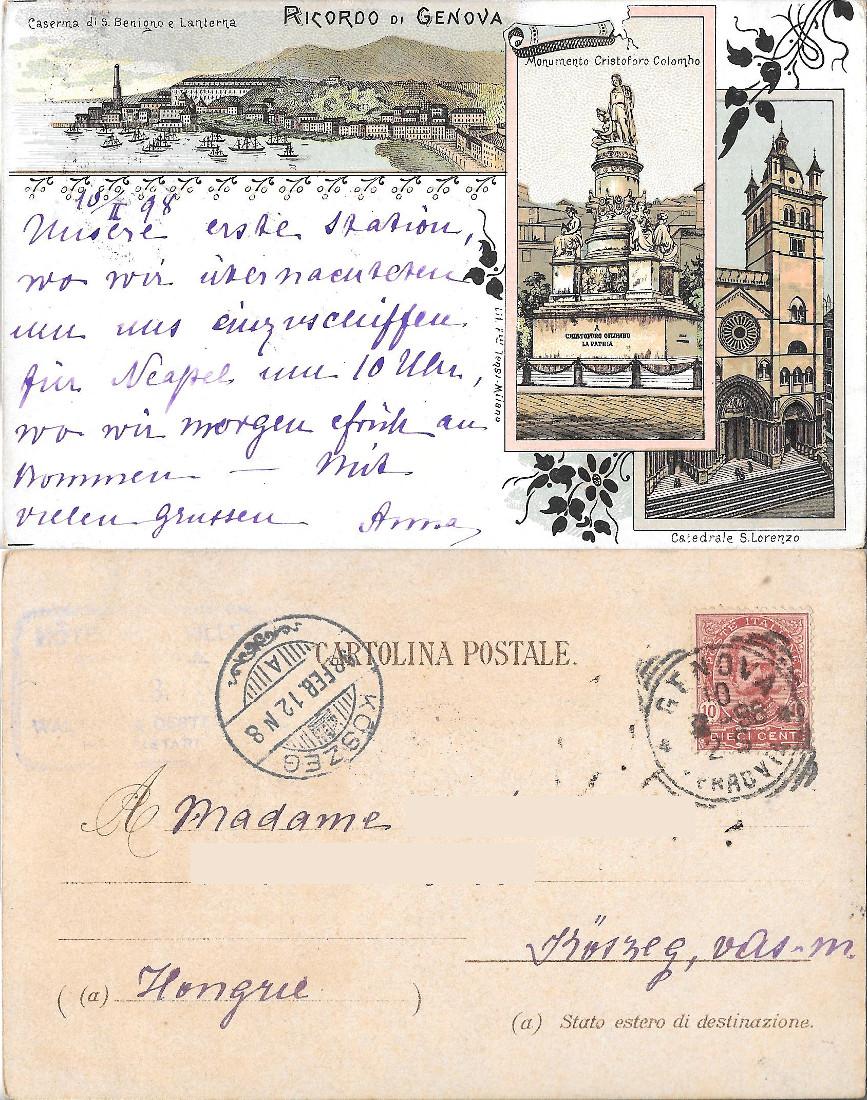 Caserma di S. Benigno e Lanterna
RICORDO DI GENOVA
Monumento Cristoforo Colombo
A
CRISTOFORO COLOMBO
LA PATRIA
Lit. F.lli Tensi-Milano
Catedrale S. Lorenzo
10/II 98
Unsere erste Station,
wo wir übernachteten
um uns einzuschiffen
für Neapel um 10 Uhr,
wo wir morgen früh an
kommen — Mit
vielen Grüssen Anna
CARTOLINA POSTALE.
KŐSZEG
98 FEB. 12 N 8
A
GENOVA
10
98
FERROVIA
POSTE ITALIANE
10
DIECI CENT
A Madame
Kőszeg, vas-m.
(a) Hongrie
(a) Stato estero di destinazione.